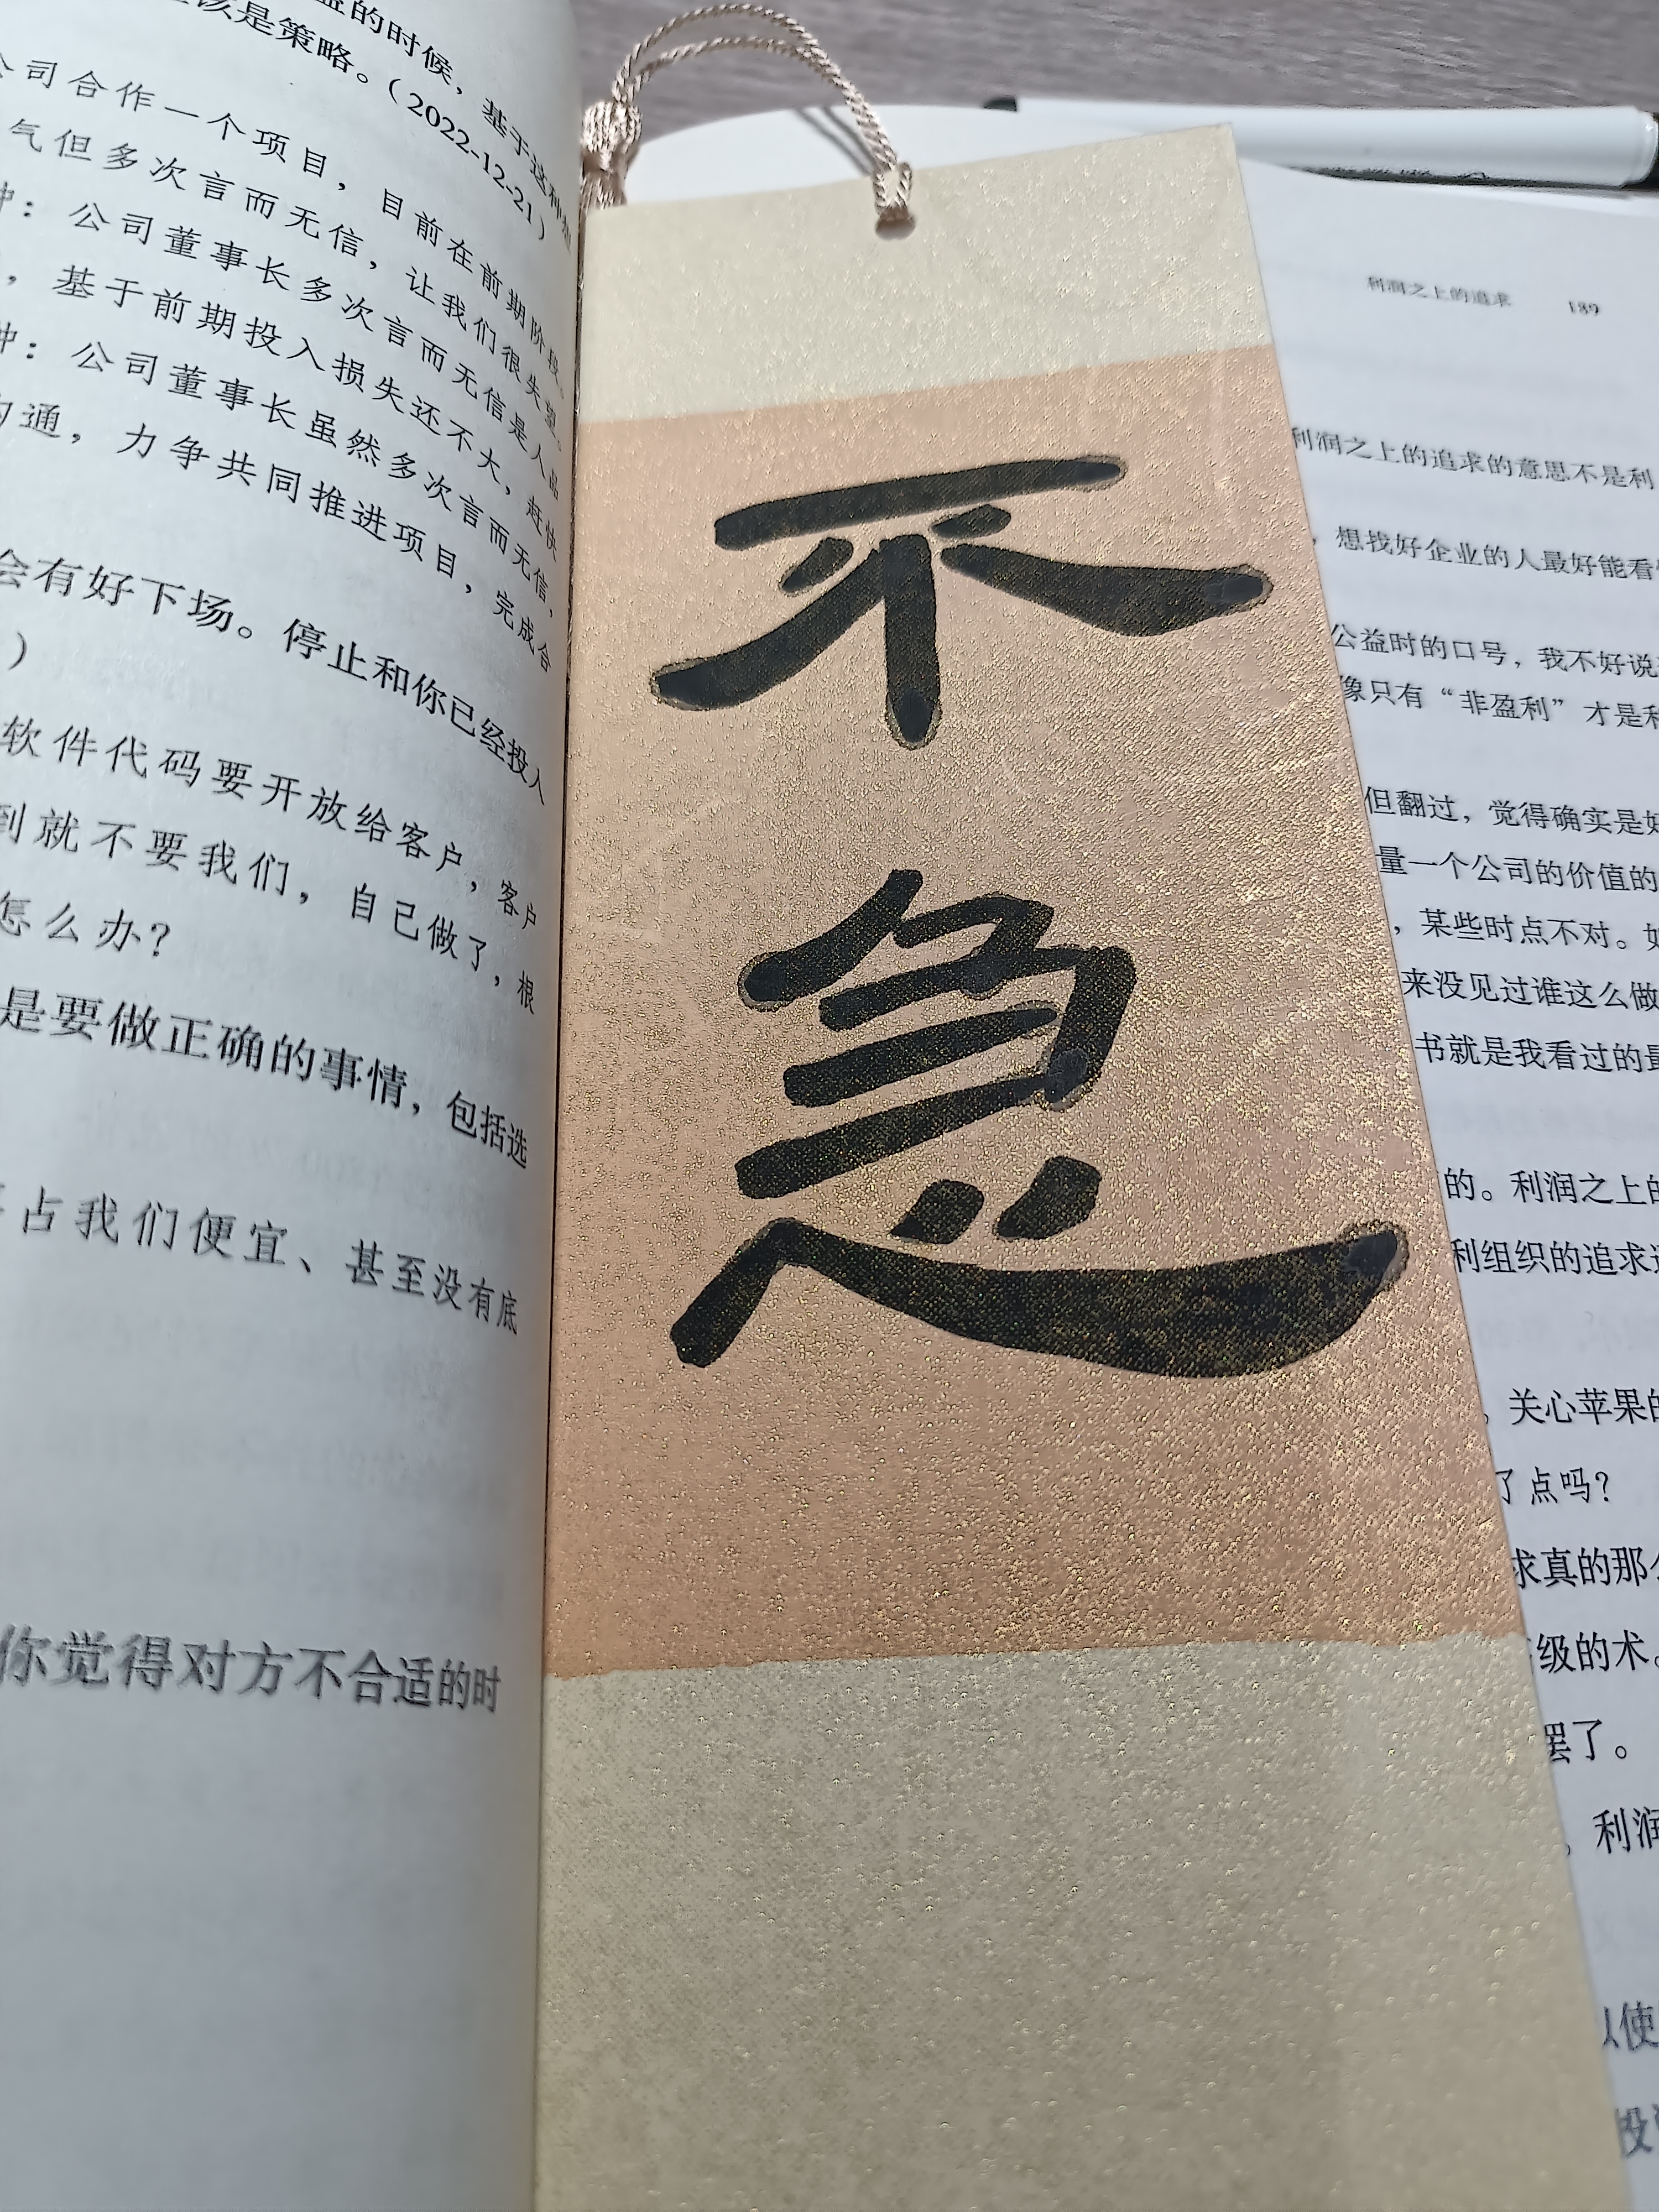 益的时候，基于这种
该是策略。（2022-12-21）
公司合作一个项目，目前在前期阶段。
气但多次言而无信，让我们很失望。
种：公司董事长多次言而无信是人品
，基于前期投入损失还不大，赶快
种：公司董事长虽然多次言而无信，
沟通，力争共同推进项目，完成合
会有好下场。停止和你已经投入
）
软件代码要开放给客户，客户
到就不要我们，自己做了，根
怎么办？
是要做正确的事情，包括选
占我们便宜、甚至没有底
你觉得对方不合适的时
不
急
利润之上的追求 189
利润之上的追求的意思不是利
，想找好企业的人最好能看
公益时的口号，我不好说
像只有“非盈利”才是利
但翻过，觉得确实是好
量一个公司的价值的
，某些时点不对。如
来没见过谁这么做
书就是我看过的最
的。利润之上的
利组织的追求
，关心苹果的
了点吗？
求真的那么
级的术。
罢了。
，利润
以使
投